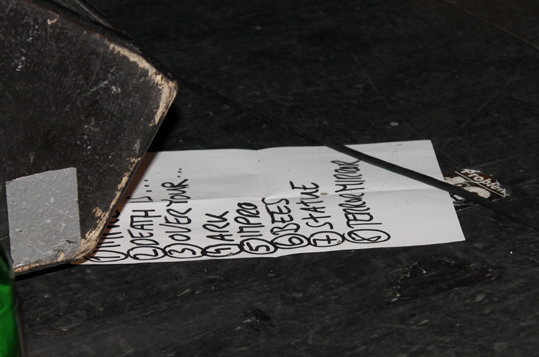 ② DEATH IS...
③ OVER YOUR...
④ ARK
⑤ IMPRO
⑥ BEES
⑦ STATUE
⑧ TERROR MIRROR